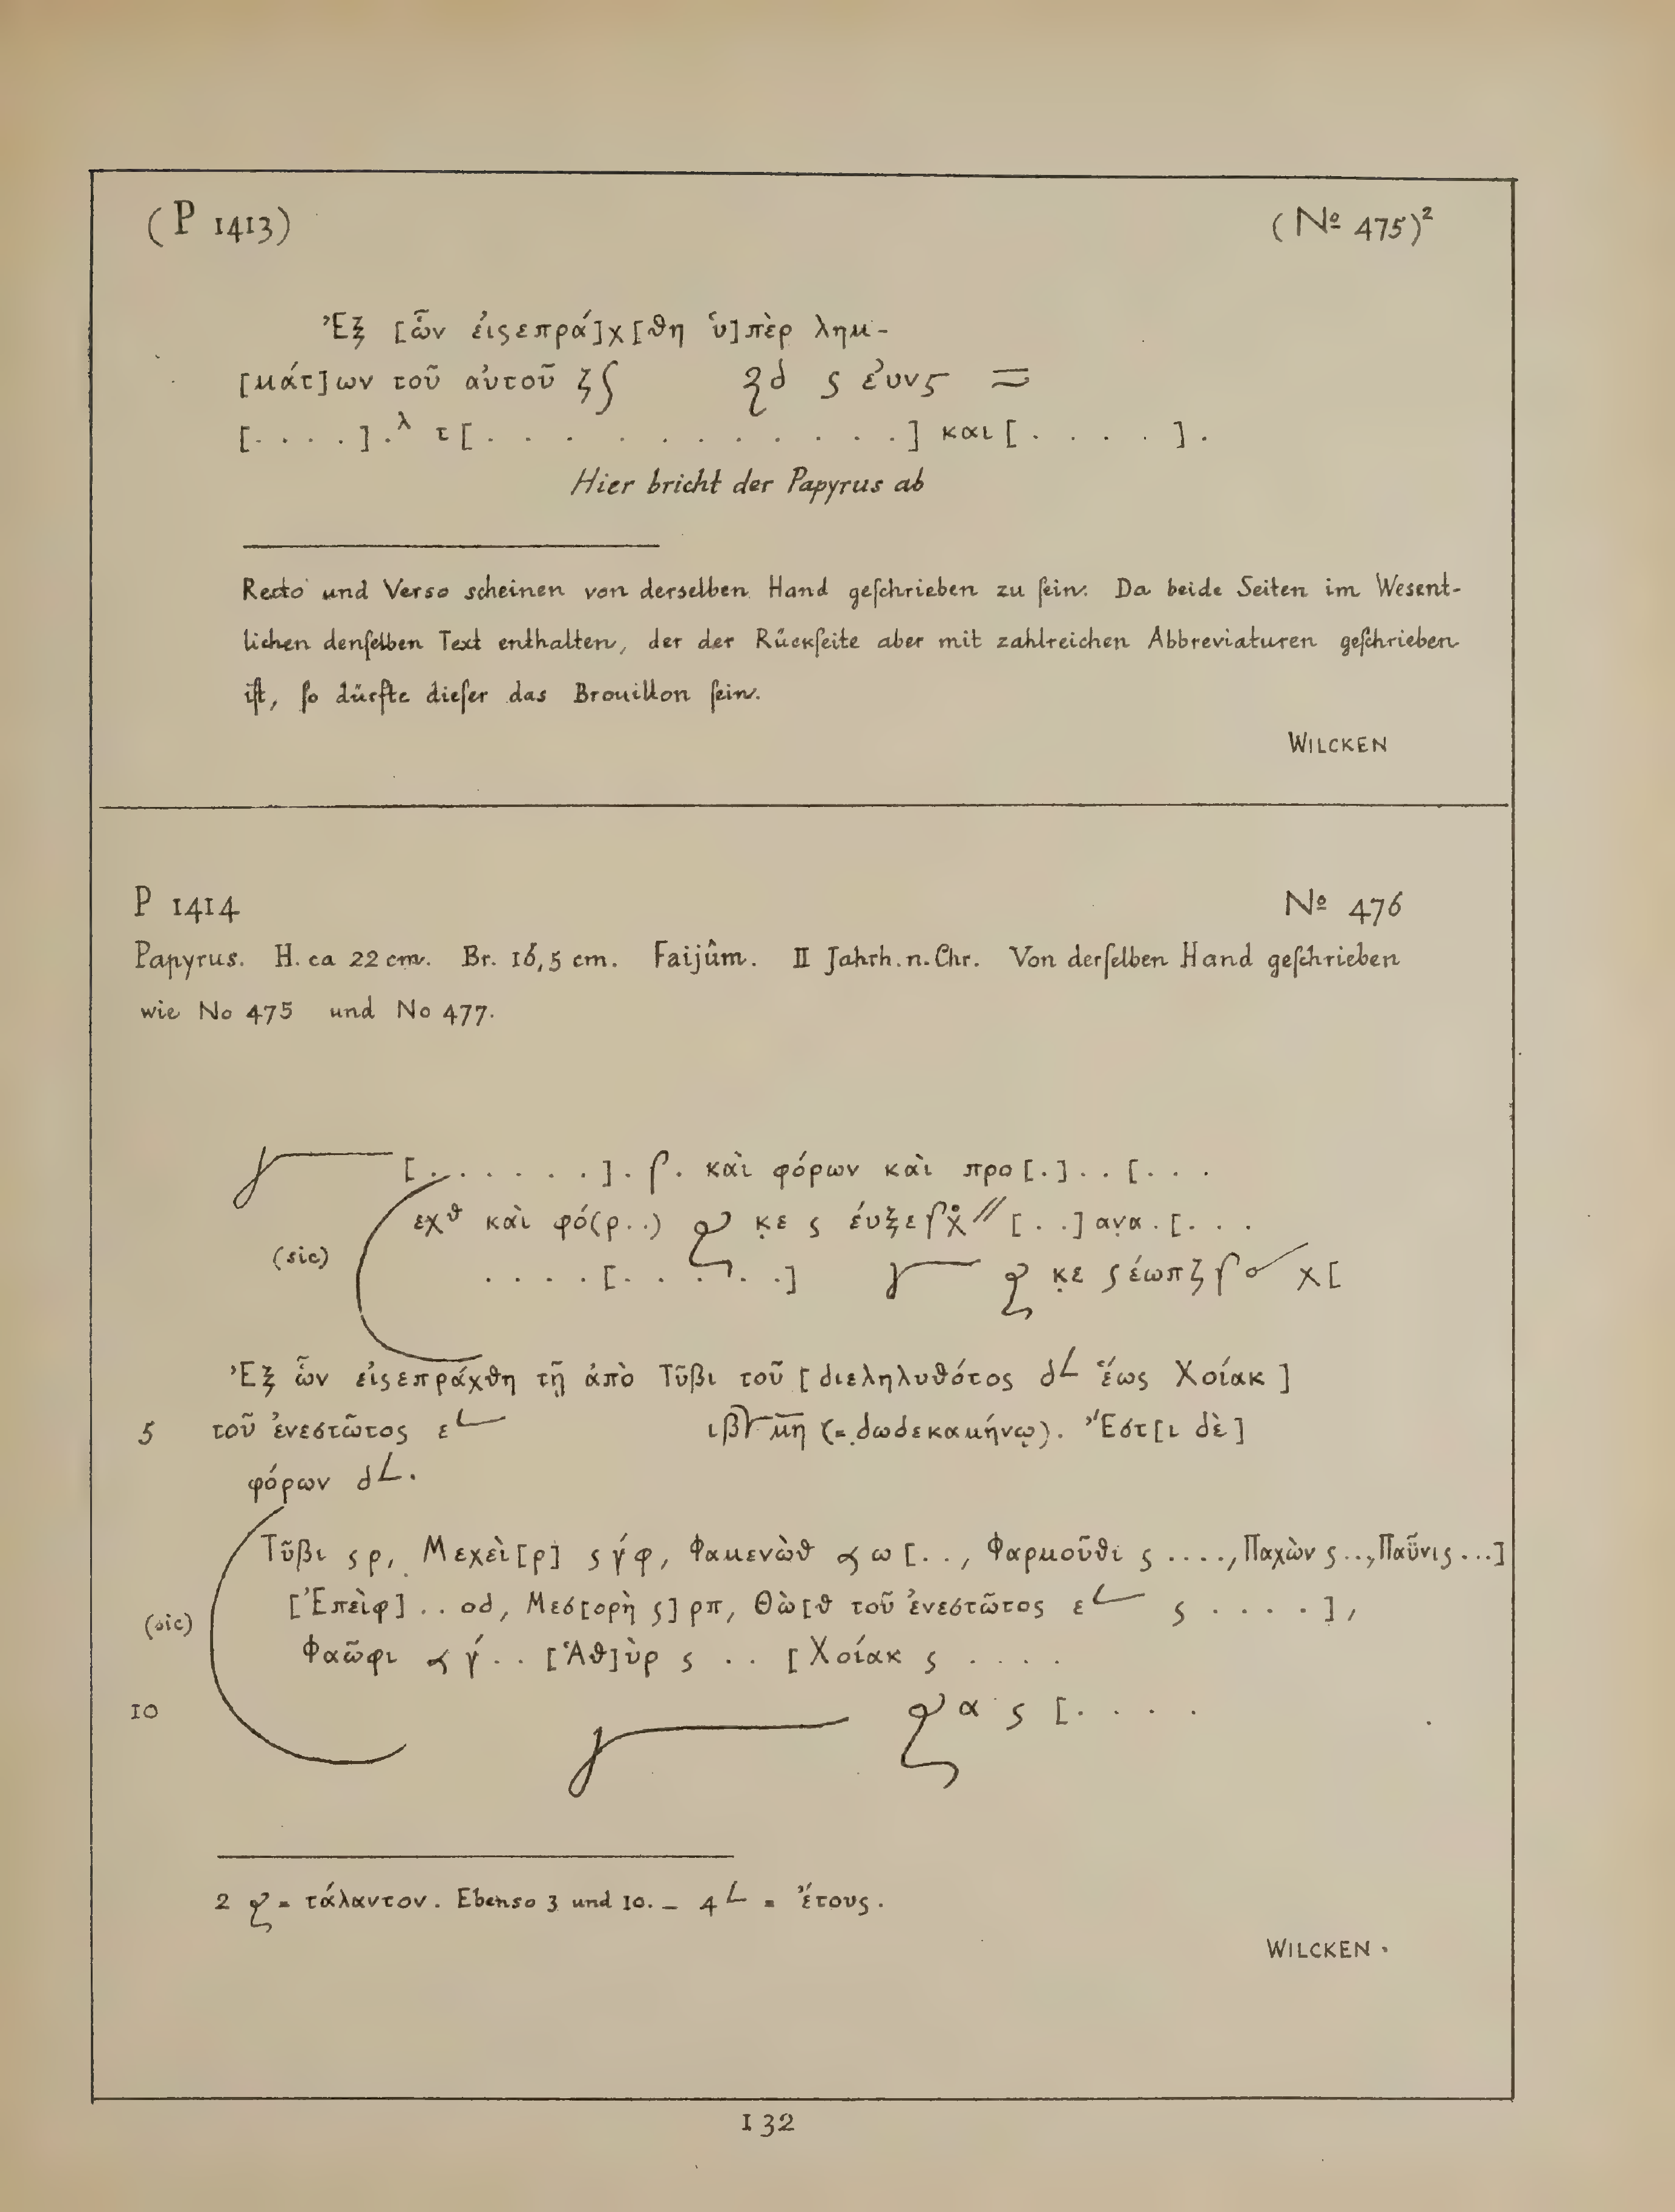 (P 1413) (No 475)²
Ἐξ [ὧν εἰςεπρά]χ[θη ὑ]πὲρ λημ-
[μάτ]ων τοῦ αὐτοῦ ζʃ ϛ ἐυνϛ =
[. . . .] .λ τ[. . . . . . . . . .] και [. . . .] .
Hier bricht der Papyrus ab
Recto und Verso scheinen von derselben Hand geſchrieben zu ſein. Da beide Seiten im Wesent-
lichen denſelben Text enthalten, der der Rückſeite aber mit zahlreichen Abbreviaturen geſchrieben
iſt, ſo dürfte dieſer das Brouillon ſein.
WILCKEN
P 1414 No 476
Papyrus. H. ca 22 cm. Br. 16,5 cm. Faijûm. II Jahrh. n. Chr. Von derſelben Hand geſchrieben
wie No 475 und No 477.
[. . . . . . .] . ʃ . καὶ φόρων καὶ προ[.] . . [. . .
εχθ καὶ φό(ρ..) κε ϛ ἐυξε [. .] ανα . [. . .
(sic) . . . . [. . . . . .] κε ϛ έωπζ χ[
Ἐξ ὧν εἰςεπράχθη τῇ ἀπὸ Τῦβι τοῦ [διεληλυθότος δL ἕως Χοίακ]
5 τοῦ ἐνεστῶτος εL ιβ μη (= δωδεκαμήνῳ). Ἔστ[ι δὲ]
φόρων δL.
Τῦβι ϛρ, Μεχεὶ[ρ] ϛγ́φ, Φαμενὼθ ω [. . , Φαρμοῦθι ϛ . . . ., Παχὼν ϛ . . , Παῧνις . . .]
(sic) [Ἐπεὶφ] . . οδ, Μεσ[ορὴ ϛ] ρπ, Θὼ[θ τοῦ ἐνεστῶτος εL ϛ . . . . ] ,
Φαῶφι γ́ . . [Ἁθ]ὺρ ϛ . . [Χοίακ ϛ . . . .
10 α ϛ [. . . .
2 = τάλαντον. Ebenso 3 und 10. – 4 L = ἔτους.
WILCKEN.
132